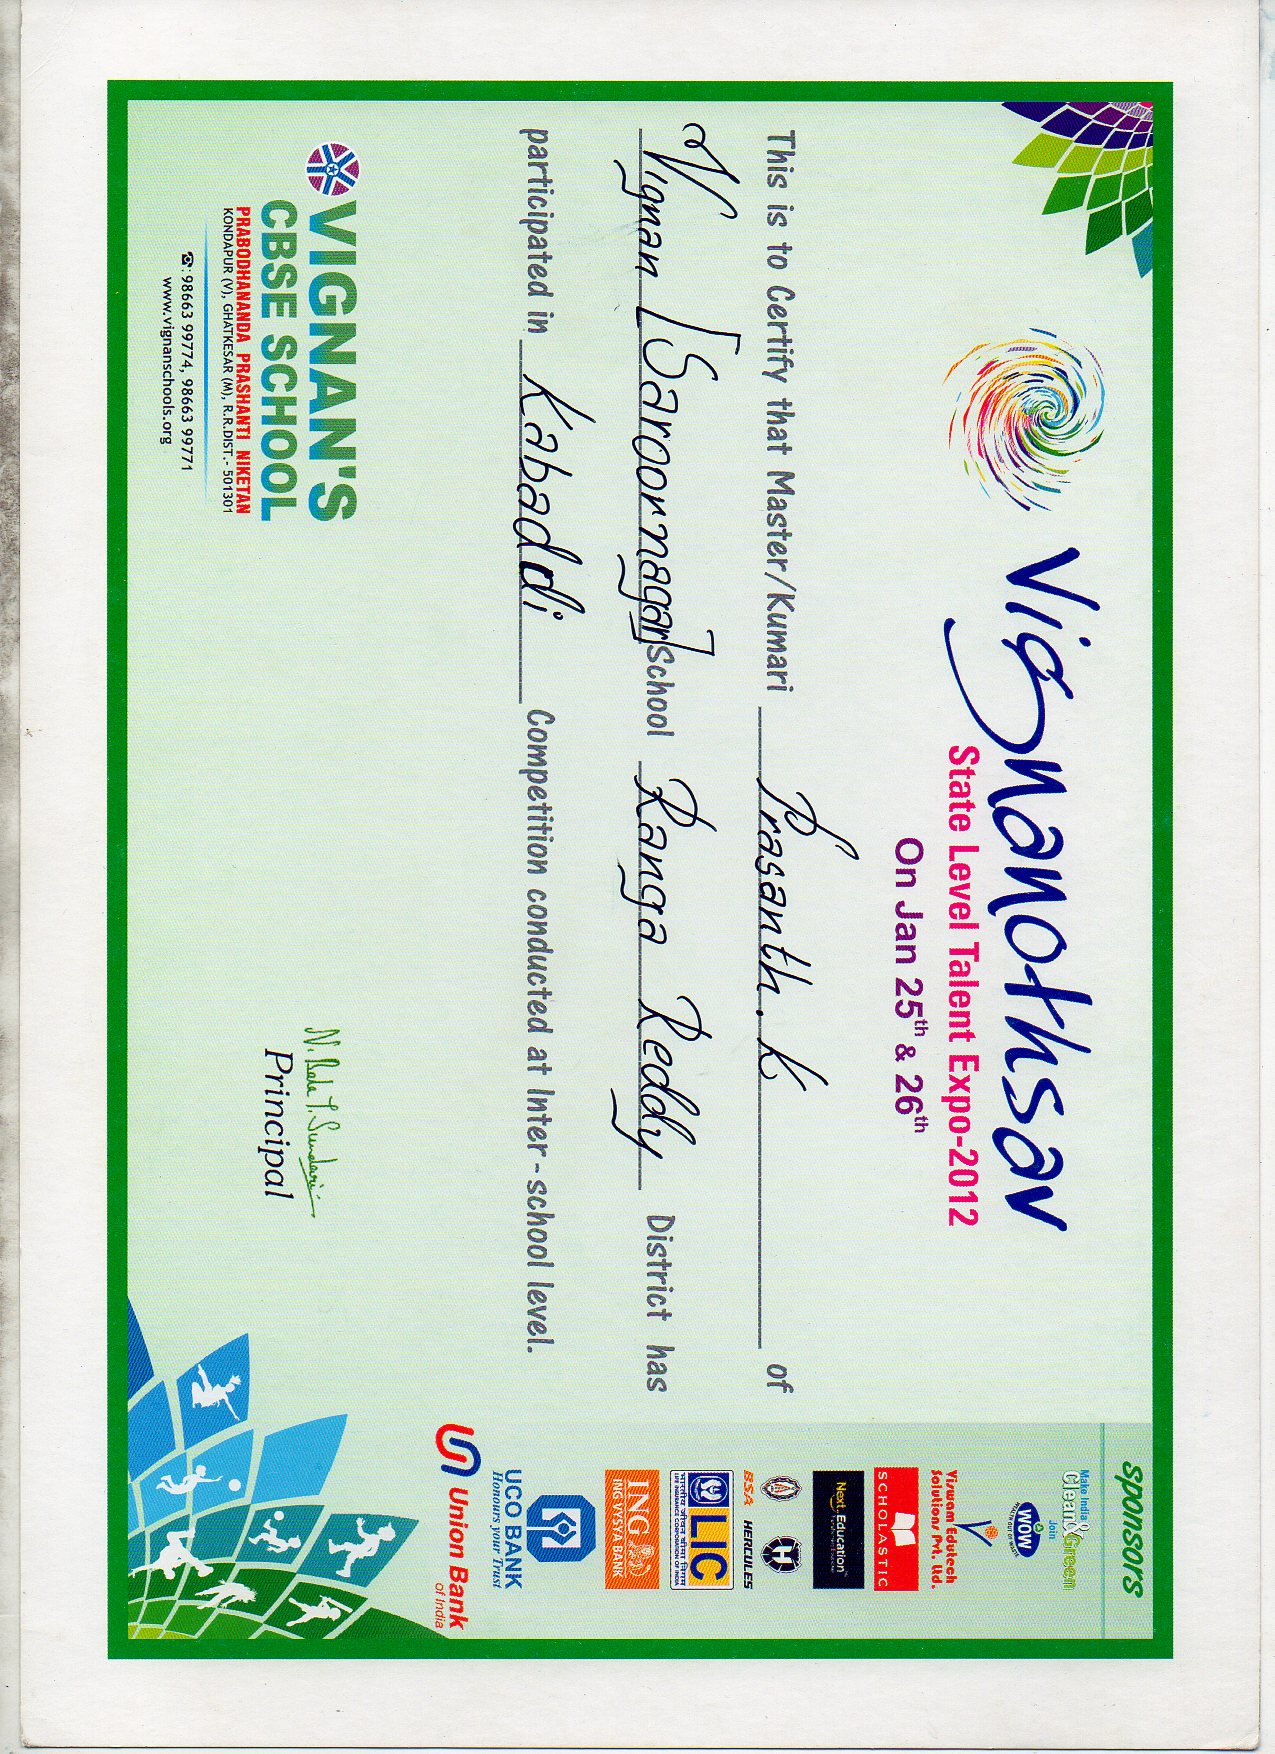 Vignanothsav
State Level Talent Expo-2012
On Jan 25th & 26th
This is to Certify that Master/Kumari Prasanth. K of
Vignan [Saroornagar] School Ranga Reddy District has
participated in Kabaddi Competition conducted at Inter-school level.
VIGNAN'S
CBSE SCHOOL
PRABODHANANDA PRASHANTI NIKETAN
KONDAPUR (V), GHATKESAR (M), R.R.DIST.- 501301
☎: 98663 99774, 98663 99771
www.vignanschools.org
N. Bala T. Sundari
Principal
sponsors
Make India
Clean & Green
Join
WOW
WEALTH OUT OF WASTE
Viswam Edutech
Solutions Pvt. Ltd.
SCHOLASTIC
Next Education
BSA HERCULES
LIC
भारतीय जीवन बीमा निगम
LIFE INSURANCE CORPORATION OF INDIA
ING
ING VYSYA BANK
UCO BANK
Honours your Trust
Union Bank
of India